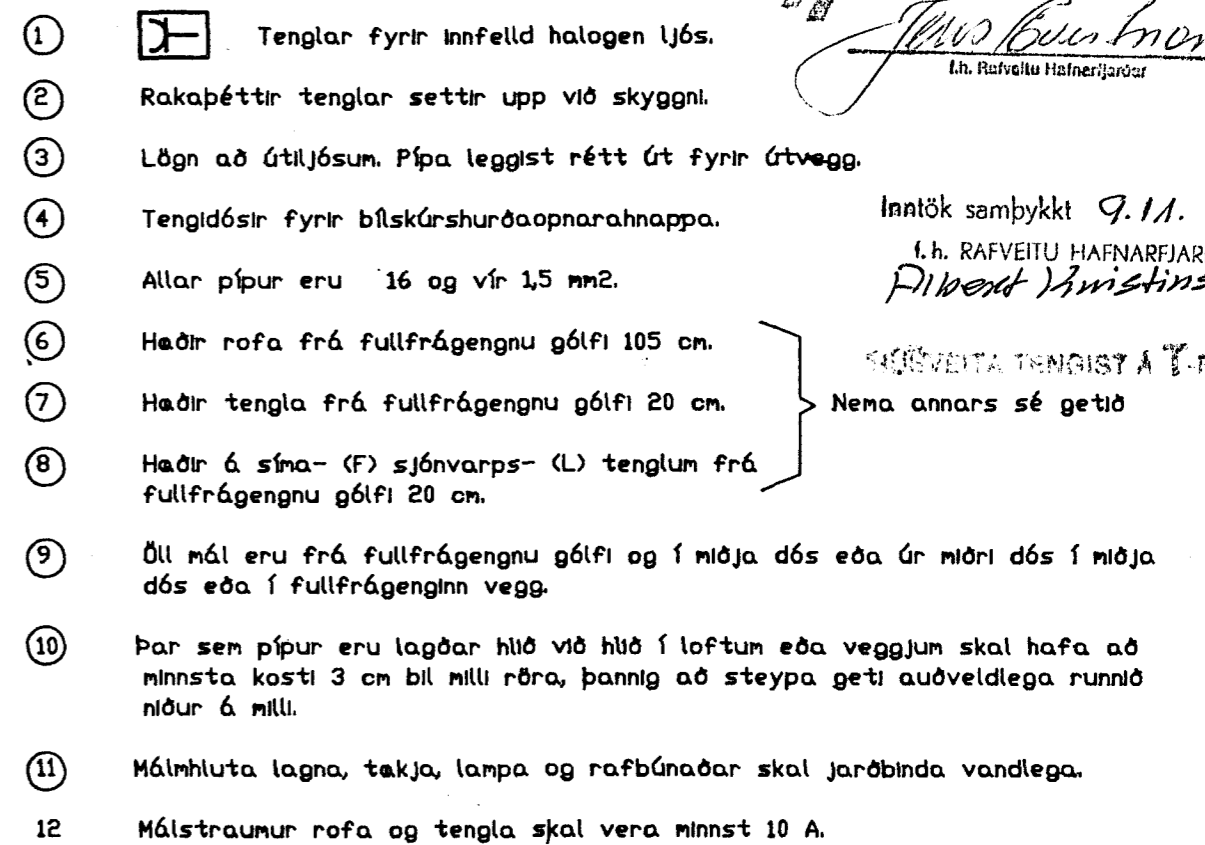 1 Tenglar fyrir innfelld halogen ljós.
f.h. Rafveitu Hafnarfjarðar
2 Rakaþéttir tenglar settir upp við skyggni.
3 Lögn að útiljósum. Pípa leggist rétt út fyrir útvegg.
4 Tengidósir fyrir bílskúrshurðaopnarahnappa.
Inntök samþykkt 9.11.
f.h. RAFVEITU HAFNARFJAR
5 Allar pípur eru 16 og vír 1,5 mm2.
Albert Kristins
6 Hæðir rofa frá fullfrágengnu gólfi 105 cm.
TENGIST Á T-
7 Hæðir tengla frá fullfrágengnu gólfi 20 cm.
Nema annars sé getið
8 Hæðir á síma- (F) sjónvarps- (L) tenglum frá
fullfrágengnu gólfi 20 cm.
9 Öll mál eru frá fullfrágengnu gólfi og í miðja dós eða úr miðri dós í miðja
dós eða í fullfrágenginn vegg.
10 Þar sem pípur eru lagðar hlið við hlið í loftum eða veggjum skal hafa að
minnsta kosti 3 cm bil milli röra, þannig að steypa geti auðveldlega runnið
niður á milli.
11 Málmhluta lagna, tækja, lampa og rafbúnaðar skal jarðbinda vandlega.
12 Málstraumur rofa og tengla skal vera minnst 10 A.